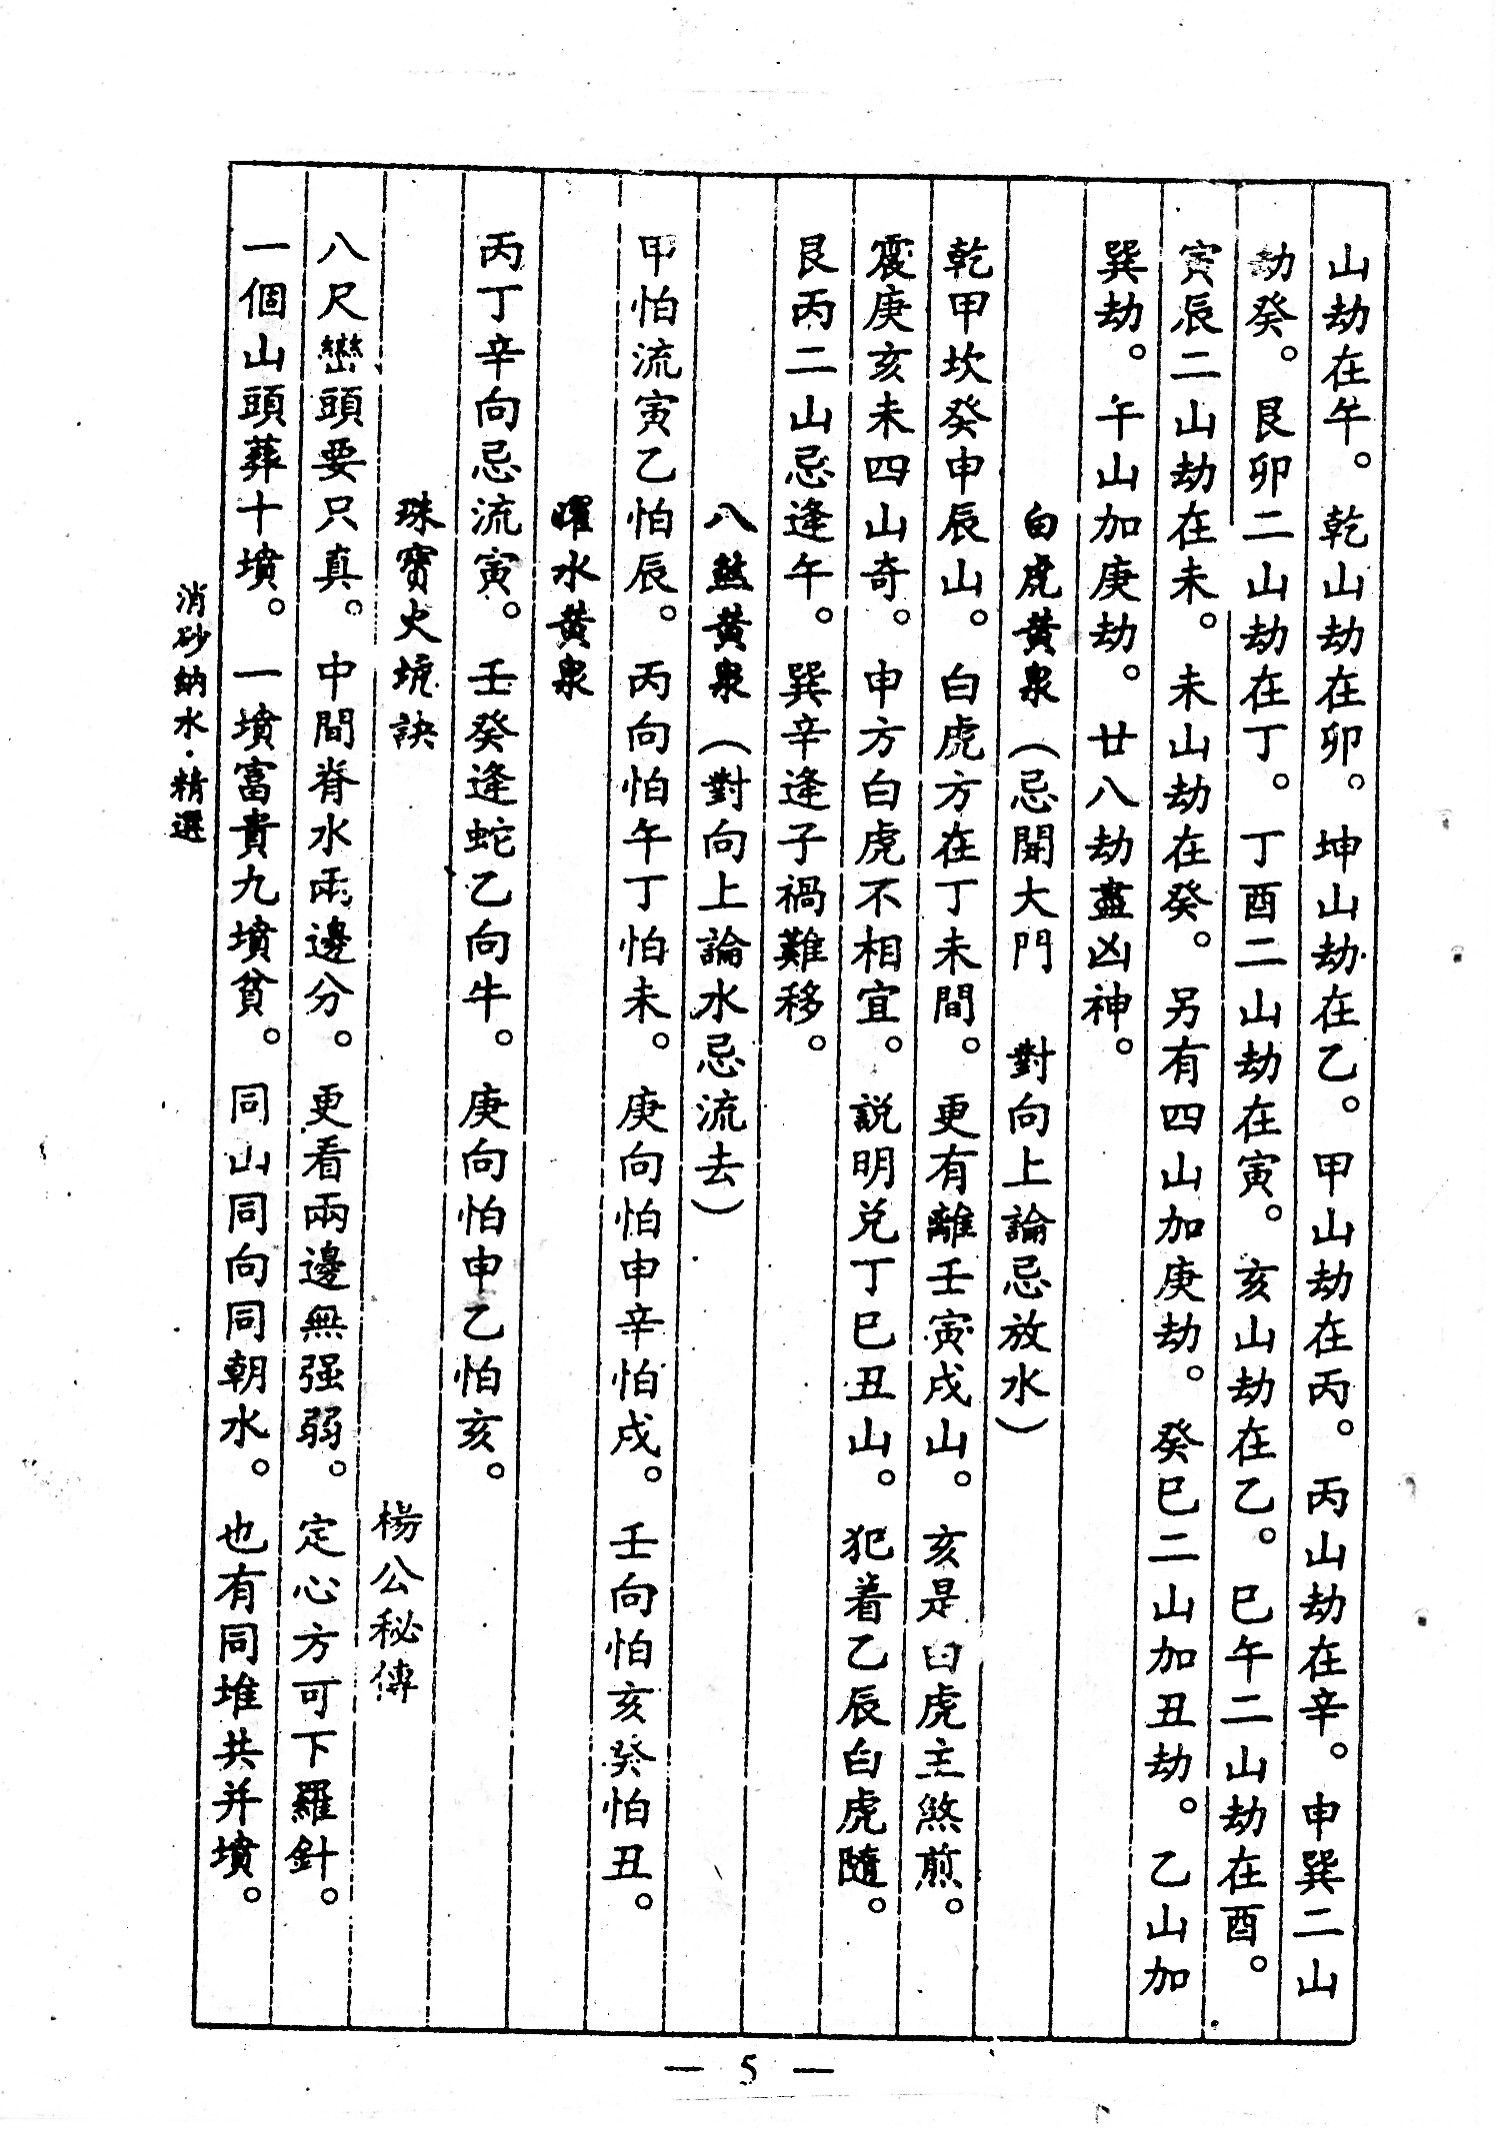 山劫在午。乾山劫在卯。坤山劫在乙。甲山劫在丙。丙山劫在辛。申巽二山
劫癸。艮卯二山劫在丁。丁酉二山劫在寅。亥山劫在乙。巳午二山劫在酉。
寅辰二山劫在未。未山劫在癸。另有四山加庚劫。癸巳二山加丑劫。乙山加
巽劫。午山加庚劫。廿八劫盡凶神。
白虎黃泉（忌開大門　對向上論忌放水）
乾甲坎癸申辰山。白虎方在丁未間。更有離壬寅戌山。亥是白虎主煞煎。
震庚亥未四山奇。申方白虎不相宜。説明兑丁巳丑山。犯着乙辰白虎隨。
艮丙二山忌逢午。巽辛逢子禍難移。
八煞黃泉（對向上論水忌流去）
甲怕流寅乙怕辰。丙向怕午丁怕未。庚向怕申辛怕戌。壬向怕亥癸怕丑。
曜水黃泉
丙丁辛向忌流寅。壬癸逢蛇乙向牛。庚向怕申乙怕亥。
珠寶火坑訣　楊公秘傳
八尺巒頭要只真。中間脊水兩邊分。更看兩邊無强弱。定心方可下羅針。
一個山頭葬十墳。一墳富貴九墳貧。同山同向同朝水。也有同堆共并墳。
消砂納水·精選
— 5 —